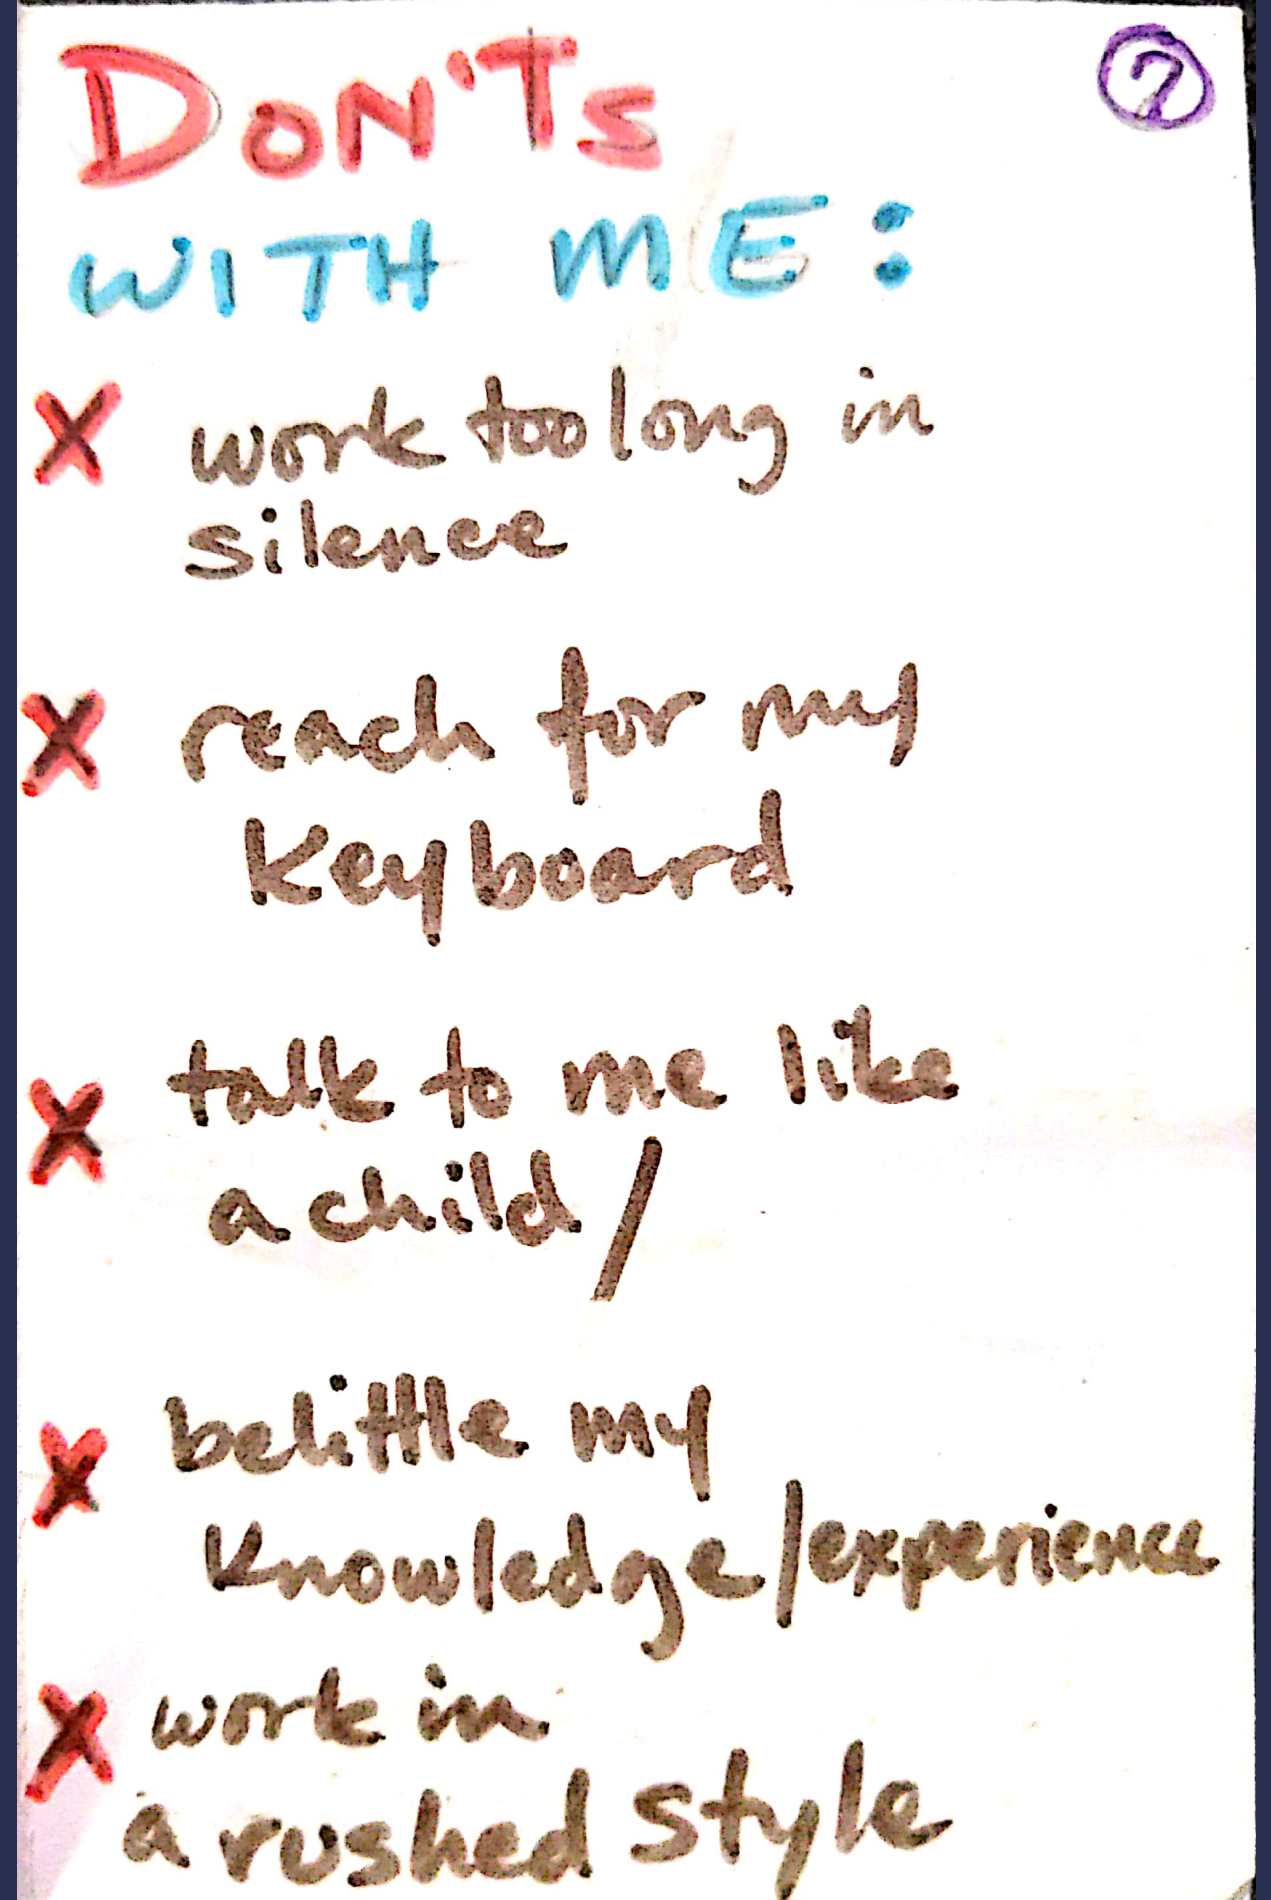 DON'TS
7
WITH ME:
X work too long in
silence
X reach for my
keyboard
X talk to me like
a child/
X belittle my
knowledge/experience
X work in
a rushed style